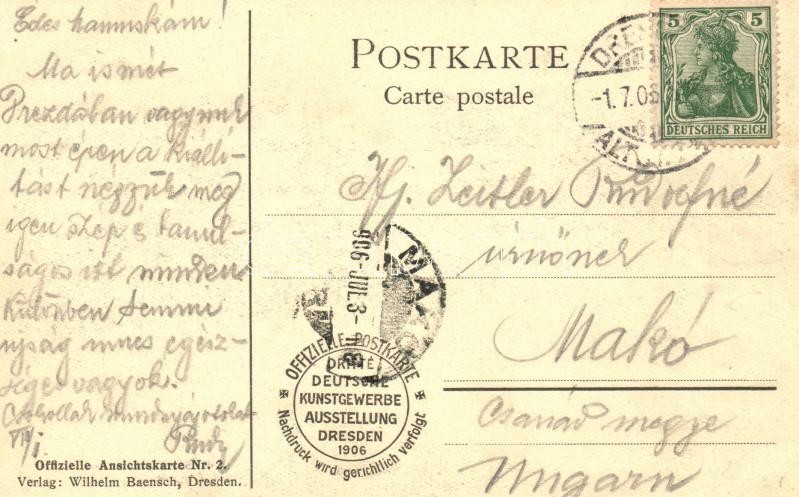 Édes mamuskám!
Ma ismét
Drezdában vagyunk
most épen a kiálli-
tást nézzük meg
igen szép és tanul-
ságos itt minden.
Különben semmi
ujság nincs egész-
séges vagyok.
Csokollak mindnyájatokat
VII/1. Rudi
Offizielle Ansichtskarte Nr. 2.
Verlag: Wilhelm Baensch, Dresden.
POSTKARTE
Carte postale
5 5
DEUTSCHES REICH
DRESDEN
-1.7.06
ALTST.
Ifj. Zeitler Rudolfné
úrnőnek
Makó
Csanád megye
Ungarn
MAKÓ
906-JUL.3-
OFFIZIELLE POSTKARTE
DRITTE
DEUTSCHE
KUNSTGEWERBE
AUSSTELLUNG
DRESDEN
1906
Nachdruck wird gerichtlich verfolgt